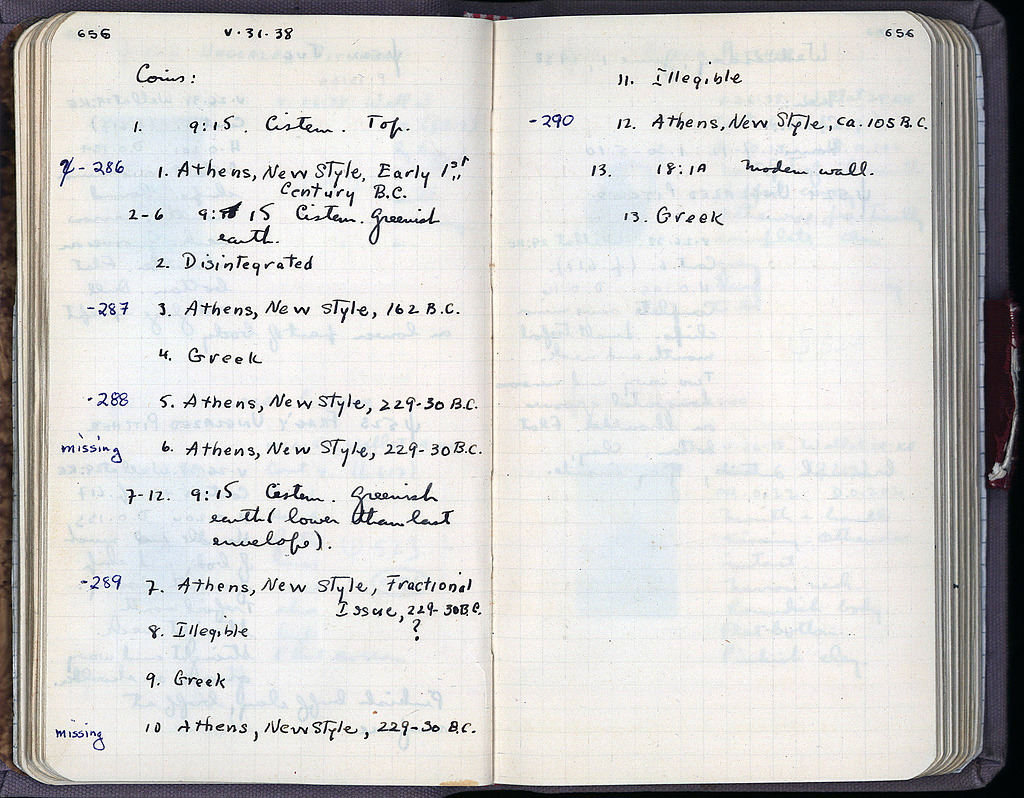 656 V·31·38
Coins:
1. 9:15. Cistern. Top.
-286 1. Athens, New Style, Early 1st
Century B.C.
2-6 9:15 Cistern. Greenish
earth.
2. Disintegrated
-287 3. Athens, New Style, 162 B.C.
4. Greek
-288 5. Athens, New Style, 229-30 B.C.
missing 6. Athens, New Style, 229-30 B.C.
7-12. 9:15 Cistern. Greenish
earth (lower than last
envelope).
-289 7. Athens, New Style, Fractional
Issue, 229-30 B.C.
?
8. Illegible
9. Greek
missing 10 Athens, New Style, 229-30 B.C.
656
11. Illegible
-290 12. Athens, New Style, ca. 105 B.C.
13. 18:1A Modern wall.
13. Greek